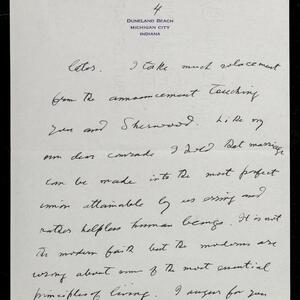 4
DUNELAND BEACH
MICHIGAN CITY
INDIANA
later. I take much solacement
from the announcement touching
you and Sherwood. Like my
own dear comrade I hold that marriage
can be made into the most perfect
union attainable by us erring and
rather helpless human beings. It is not
the modern faith but the moderns are
wrong about some of the most essential
principles of living. I augur for you